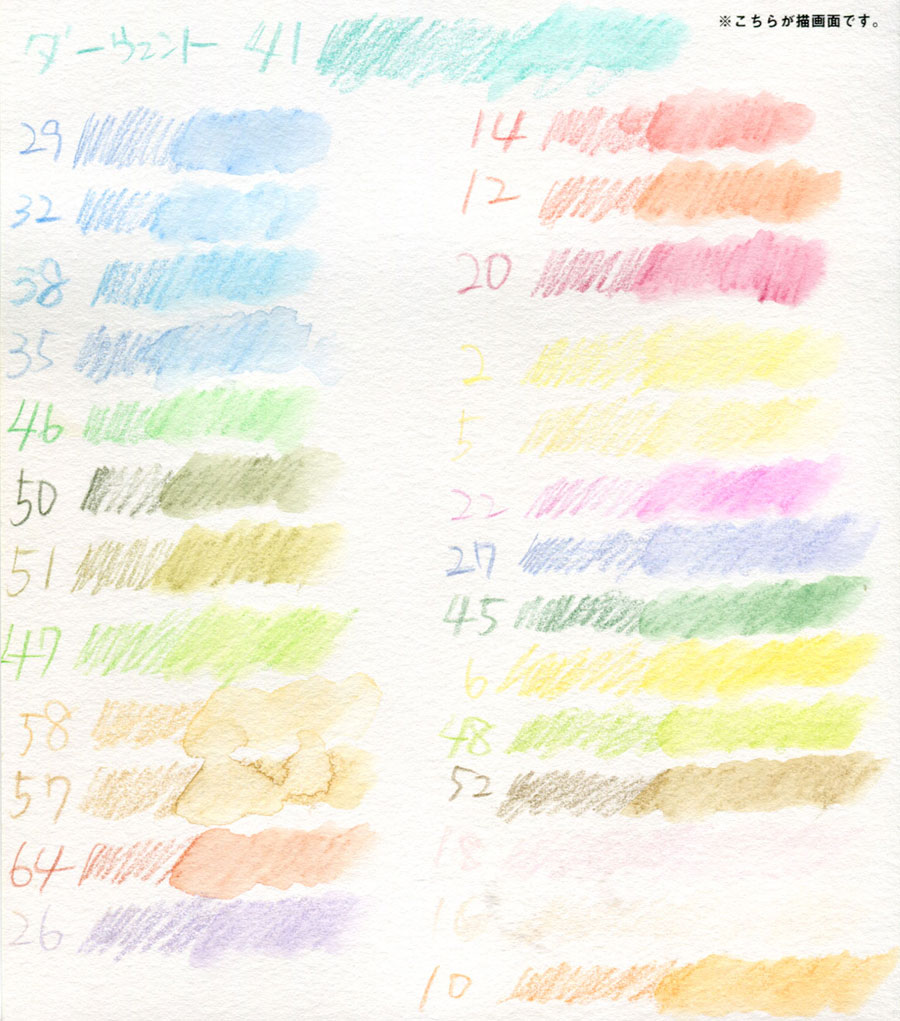 ※こちらが描画面です。
ダーウェント 41
29
32
38
35
46
50
51
47
58
57
64
26
14
12
20
2
5
22
27
45
6
48
52
18
16
10